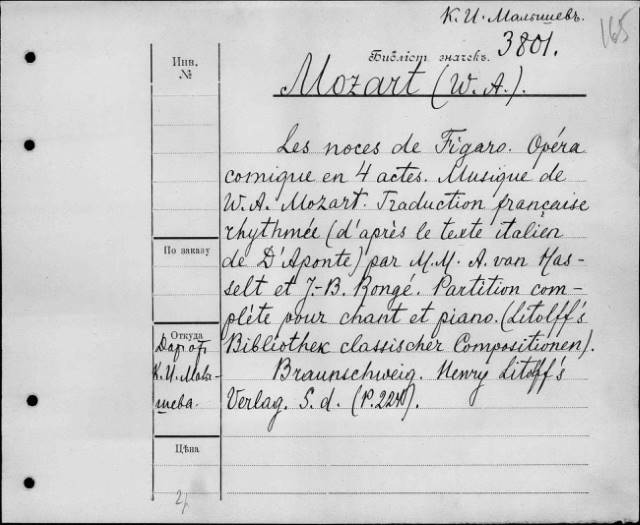 К. И. Малышевъ.
165
Инв.
№
Библіот. значек. 3801.
Mozart (W. A.).
Les noces de Figaro. Opéra
comique en 4 actes. Musique de
W. A. Mozart. Traduction française
rhythmée (d'après le texte italien
de D'Aponte) par M.M. A. van Has-
selt et J.-B. Rongé. Partition com-
plète pour chant et piano. (Litolff's
Bibliothek classischer Compositionen).
Braunschweig. Henry Litolff's
Verlag. S. d. (P. 224).
По заказу
Откуда
Дар от
К. И. Малы-
шева.
Цѣна